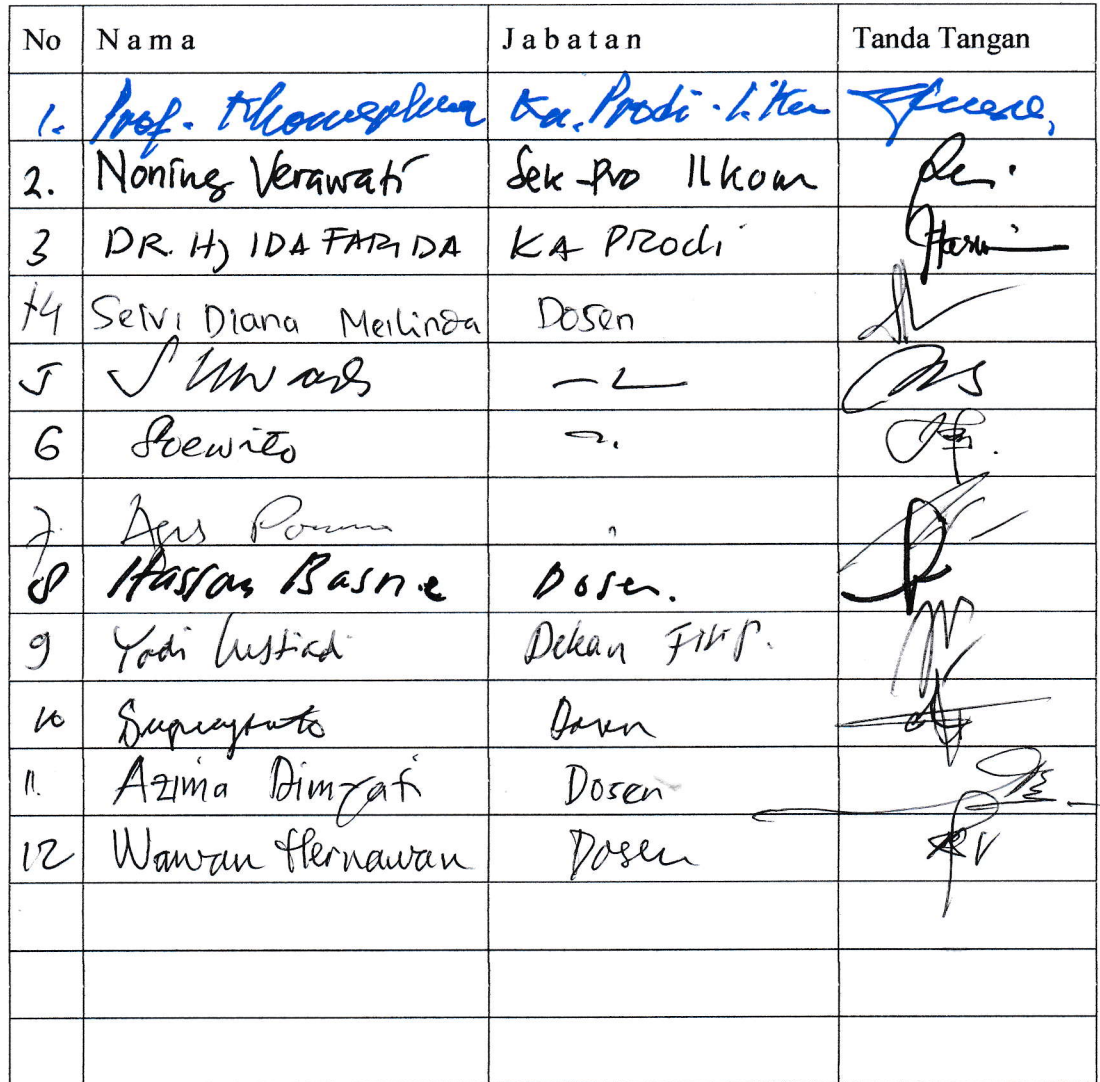 No Nama Jabatan Tanda Tangan
1. Prof. Khomsahrial Ka. Prodi - I.Kom
2. Noning Verawati Sek-Pro Ilkom
3 DR. Hj IDA FARIDA KA PRodi
4 Selvi Diana Meilinda Dosen
5
6 Soewito
7. Agus
8 Hassan Basrie Dosen.
9 Yadi Lustiadi Dekan FISIP.
10 Suprayinto Dosen
11. Azima Dimyati Dosen
12 Wawan Hernawan Dosen